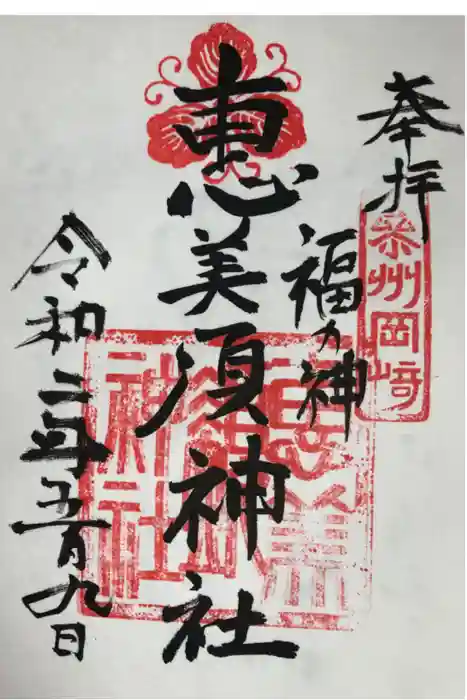 奉拝
参州岡﨑
福の神
恵美須神社
令和二年五月九日